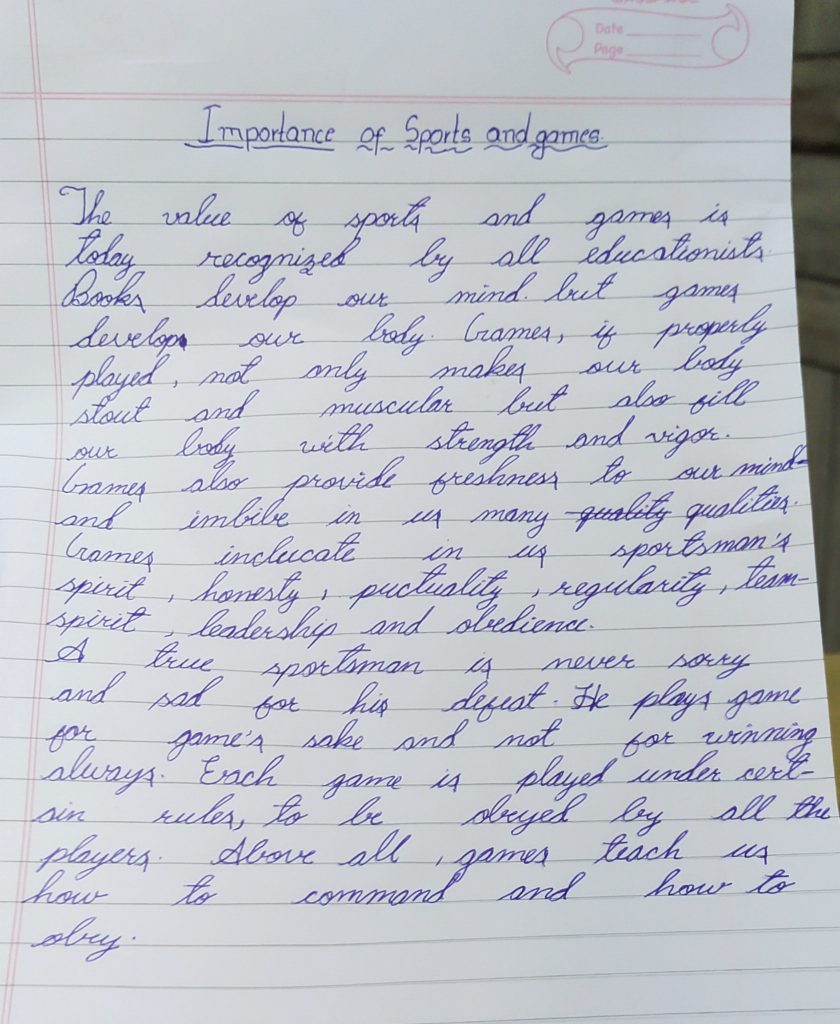 Date
Page
Importance of Sports and games.
The value of sports and games is
today recognized by all educationists.
Books develop our mind. but games
develop our body. Games, if properly
played, not only makes our body
stout and muscular but also fill
our body with strength and vigor.
Games also provide freshness to our mind-
and imbibe in us many quality qualities.
Games inclucate in us sportsman's
spirit, honesty, puctuality, regularity, team-
spirit, leadership and obedience.
A true sportsman is never sorry
and sad for his defeat. He plays game
for game's sake and not for winning
always. Each game is played under cert-
ain rules, to be obeyed by all the
players. Above all, games teach us
how to command and how to
obey.